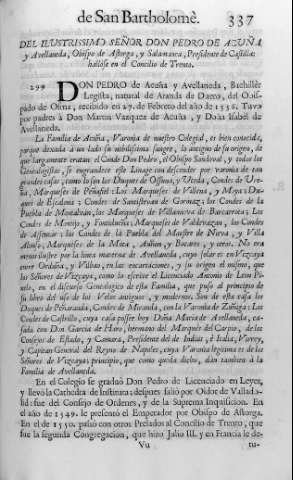 de San Bartholomè. 337
DEL ILUSTRISSIMO SEÑOR DON PEDRO DE ACUÑA
y Avellaneda, Obispo de Astorga, y Salamanca, Presidente de Castilla:
hallóse en el Concilio de Trento.
299 DON PEDRO de Acuña y Avellaneda, Bachillèr
Legista, natural de Aranda de Duero, del Obis-
pado de Osma, recibido en 27. de Febrero del año de 1536. Tuvo
por padres à Don Martin Vazquez de Acuña, y Doña Isabel de
Avellaneda.
La Familia de Acuña, Varonia de nuestro Colegial, es bien conocida,
porque dexada à un lado su nobilissima sangre, lo antiguo de su origen, de
que largamente tratan el Conde Don Pedro, el Obispo Sandoval, y todos los
Genealogistas, se engrandece este Linage con descender por varonia de tan
grandes casas, como lo son los Duques de Ossuna, y Uceda, Condes de Ure-
ña, Marqueses de Peñafiel: Los Marqueses de Villena, y Moya: Du-
ques de Escalona: Condes de Santistevan de Gormaz: los Condes de la
Puebla de Montalvan, los Marqueses de Villanueva de Barcarrota: Los
Condes de Montijo, y Fuentidueña, Marqueses de Valderravano, los Condes
de Assumar: los Condes de la Puebla del Maestre de Nieva, y Villa
Alonso, Marqueses de la Mota, Auñon, y Bacares, y otras. No era
menos ilustre por la linea materna de Avellaneda, cuyo solar es en Vizcaya
entre Orduña, y Vilbao, en las encartaciones, y su origen el mismo, que
los Señores de Vizcaya, como lo escrive el Licenciado Antonio de Leon Pi-
nelo, en el discurso Genealogico de esta Familia, que puso al principio de
su libro del uso de los Velos antiguos, y modernos. Son de esta casa los
Duques de Peñaranda, Condes de Miranda, con la Varonia de Zuñiga: Los
Condes de Castrillo, cuya casa possee hoy Doña Maria de Avellaneda, ca-
sada con Don Garcia de Haro, hermano del Marquès del Carpio, de los
Consejos de Estado, y Camara, Presidente del de Indias, è Italia, Virrey,
y Capitan General del Reyno de Napoles, cuya Varonia legitima es de los
Señores de Vizcaya; principio, que como queda dicho, dàn tambien à la
Familia de Avellaneda.
En el Colegio se graduò Don Pedro de Licenciado en Leyes,
y llevò la Cathedra de Instituta; despues saliò por Oidor de Vallado-
lid: fue del Consejo de Ordenes, y de la Suprema Inquisicion. En
el año de 1549. le presentò el Emperador por Obispo de Astorga.
En el de 1550. passò con otros Prelados al Concilio de Trento, que
fue la segunda Congregacion, que hizo Julio III. y en Francia le de-
Vu tu-